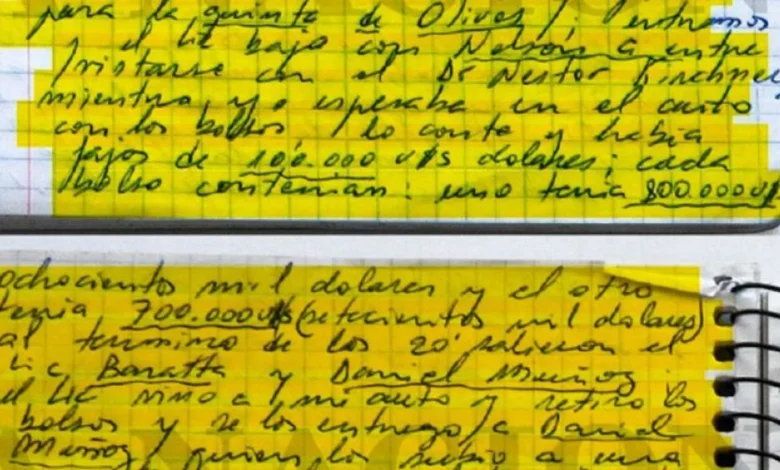 para la quinta de Olivos /: entramos
y el lic bajo con Nelson a entre
/vistarse con el Dr Nestor Kirchner
mientra, yo esperaba en el auto
con los bolsos / lo conte y habia
fajos de 100.000 u/s dolares; cada
/bolso contenian: uno tenia 800.000 u/s
ochocientos mil dolares y el otro
tenia 700.000 u/s (setecientos mil dolares)
al termino de los 20' salieron el
lic Baratta y Daniel Muñoz.
el lic vino a mi auto y retiro los
bolsos y se los entrego /a Daniel
Muñoz, quien los subio a una